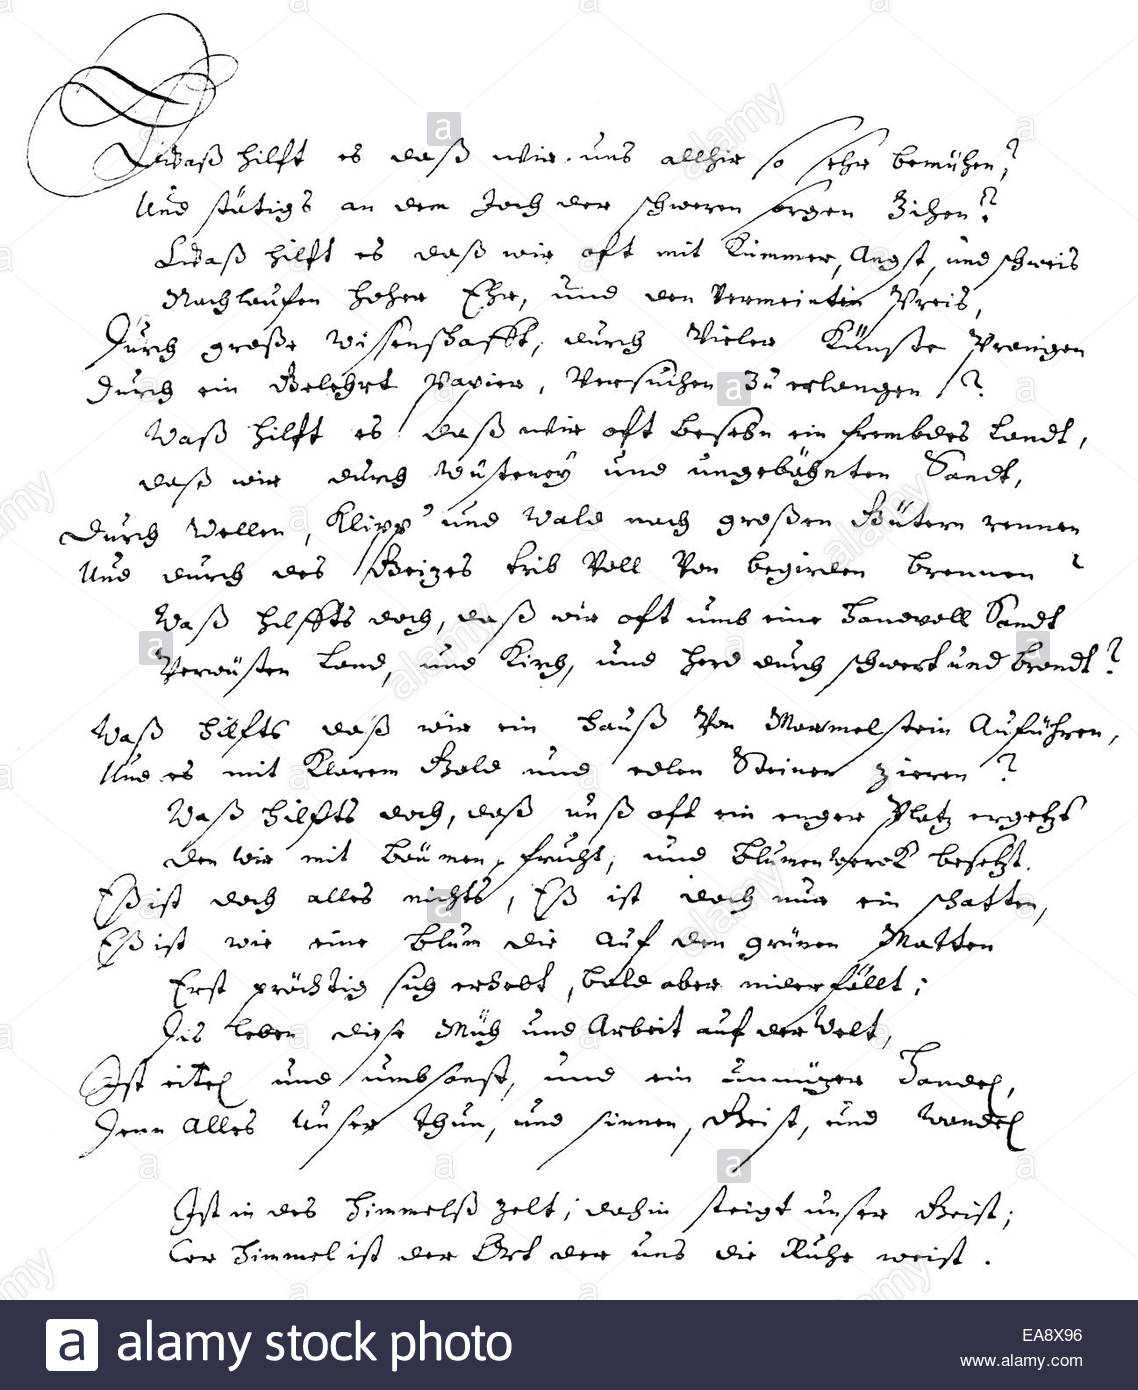 Waß hilft es daß wir uns allhir so sehr bemühen?
Und stätigs an dem Joch der schweren sorgen Zihen?
Waß hilft es daß wir oft mit Kummer, Angst, und schweis
Nachlaufen hoher Ehr, und den Vermeinten Preis,
Durch große Wissenschafft, durch Vieler Künste Prangen
Durch ein Gelehrt Papier, Versuchen Zu erlangen?
Waß hilft es daß wir oft besehn ein frembdes Landt,
daß wir durch Wüsteney und ungebähnten Sandt,
Durch Wellen, Klipp' und Wald nach großen Gütern rennen
Und durch des Geizes trib Voll Von begirden brennen?
Waß hilffts doch, daß wir oft umb eine Handvoll Sandt
Verwüsten Land, und Kirch, und Herd durch schwert und brandt?
Waß hilfts daß wir ein Hauß Von Marmelstein Aufführen,
Und es mit Klarem Gold und edlen Steinen zieren?
Waß hilfts doch, daß unß oft ein enger Platz ergetzt
Den wir mit Bäumen, frucht, und Blumenwerck besetzt.
Eß ist doch alles nichts, Eß ist doch nur ein schatten,
Eß ist wie eine Blum die auf den grünen Matten
Erst prächtig sich erhebt, bald aber niderfällt;
Dis leben diese Müh und Arbeit auf der Welt,
Ist eitel und umbsonst, und ein unnüzer Handel,
Denn Alles Unser thun, und sinnen, Geist, und Wandel
Ist in des Himmelß zelt; dahin steigt unser Geist;
Der Himmel ist der Ort der uns die Ruhe weist.
alamy stock photo
EA8X96
www.alamy.com